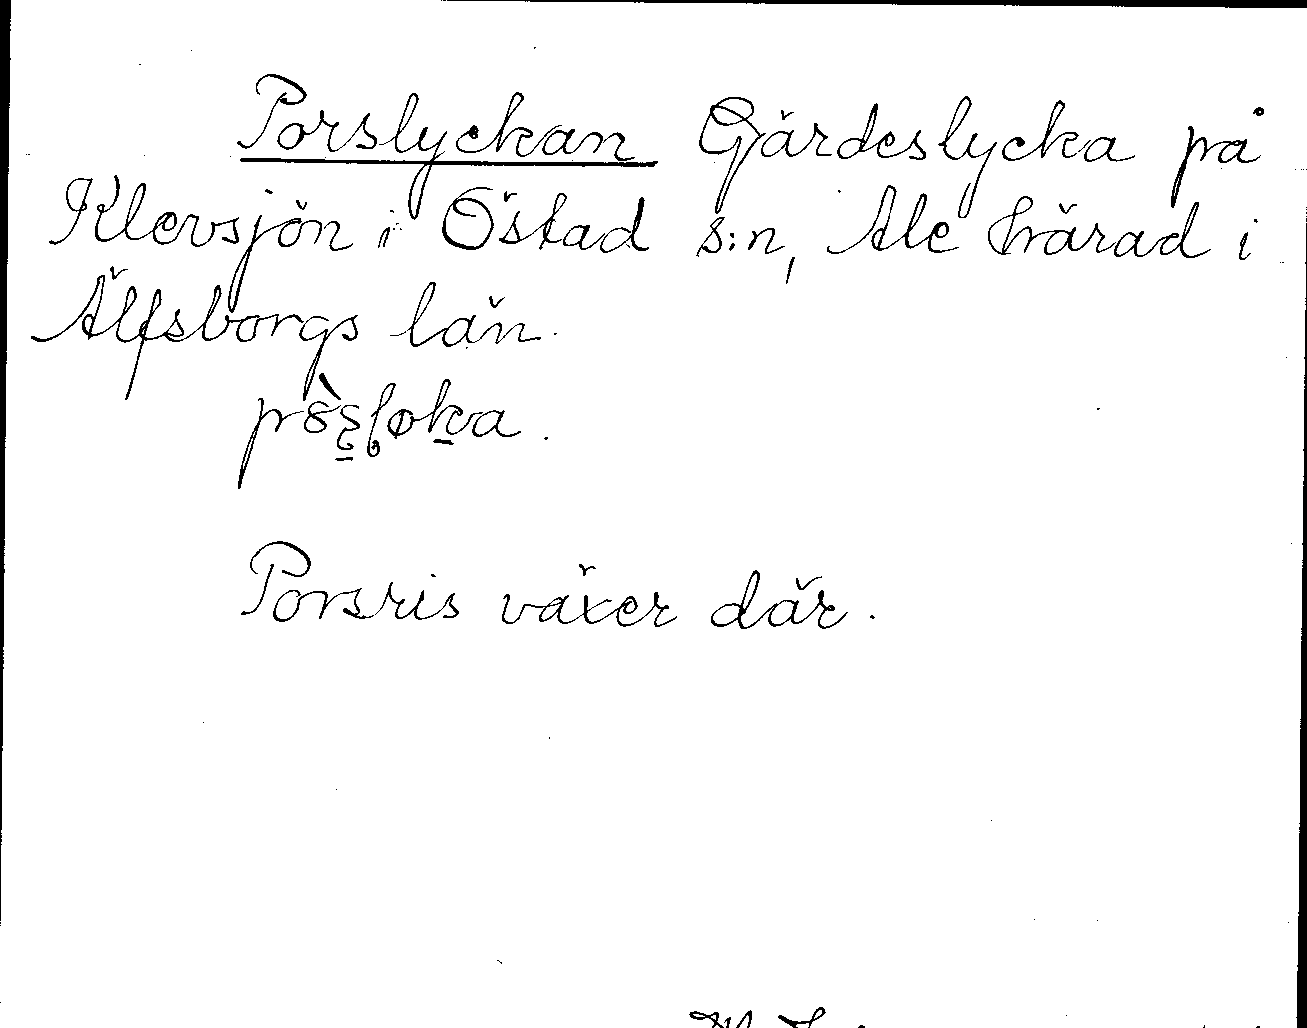 Porslyckan Gärdeslycka på
Klevsjön i Östad s:n, Ale härad i
Älfsborgs län.
Porsris växer där.